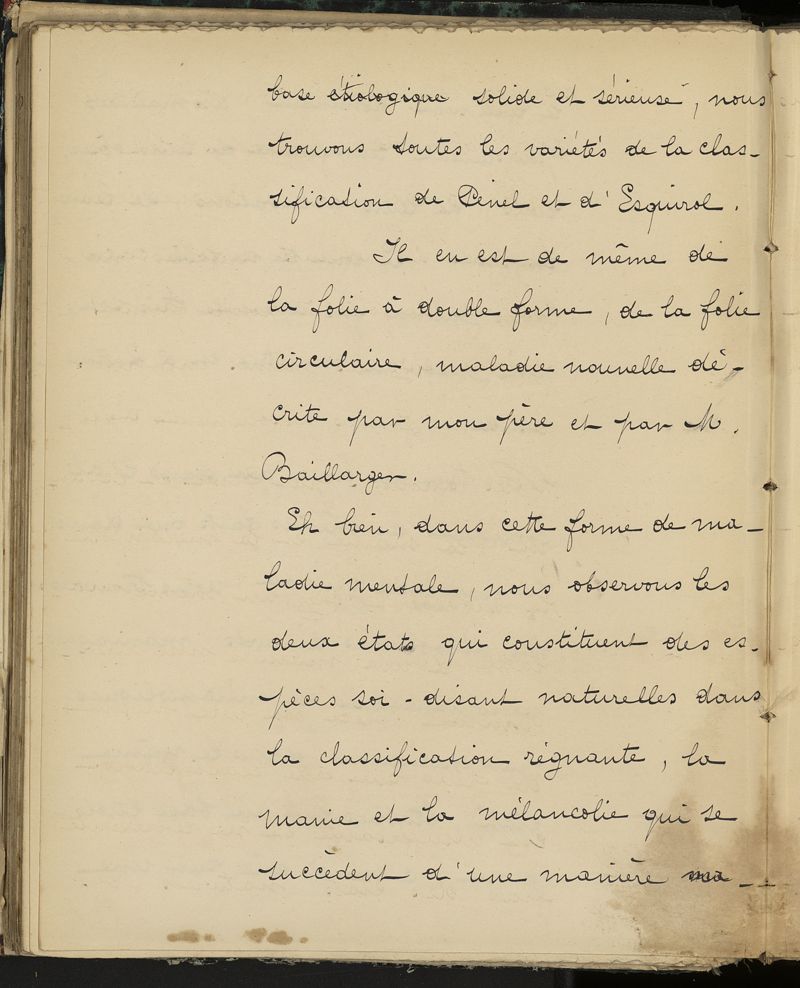 base étiologique solide et sérieuse, nous
trouvons toutes les variétés de la clas-
sification de Pinel et d'Esquirol.
Il en est de même de
la folie à double forme, de la folie
circulaire, maladie nouvelle dé-
crite par mon père et par M.
Baillarger.
Eh bien, dans cette forme de ma-
ladie mentale, nous observons les
deux états qui constituent des es-
pèces soi-disant naturelles dans
la classification régnante, la
manie et la mélancolie qui se
succèdent d'une manière